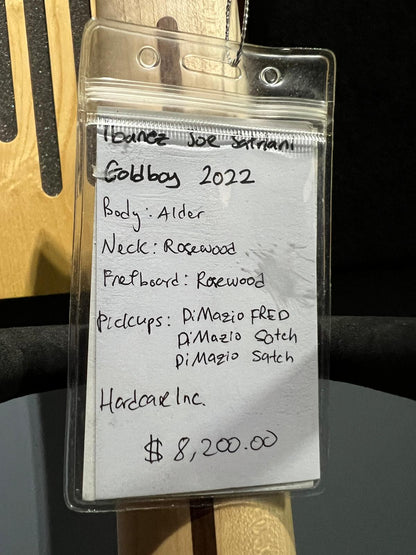 Ibanez Joe Satriani
Goldboy 2022
Body: Alder
Neck: Rosewood
Fretboard: Rosewood
Pickups: DiMazio FRED
DiMazio Satch
DiMazio Satch
Hardcase Inc.
$ 8,200.00